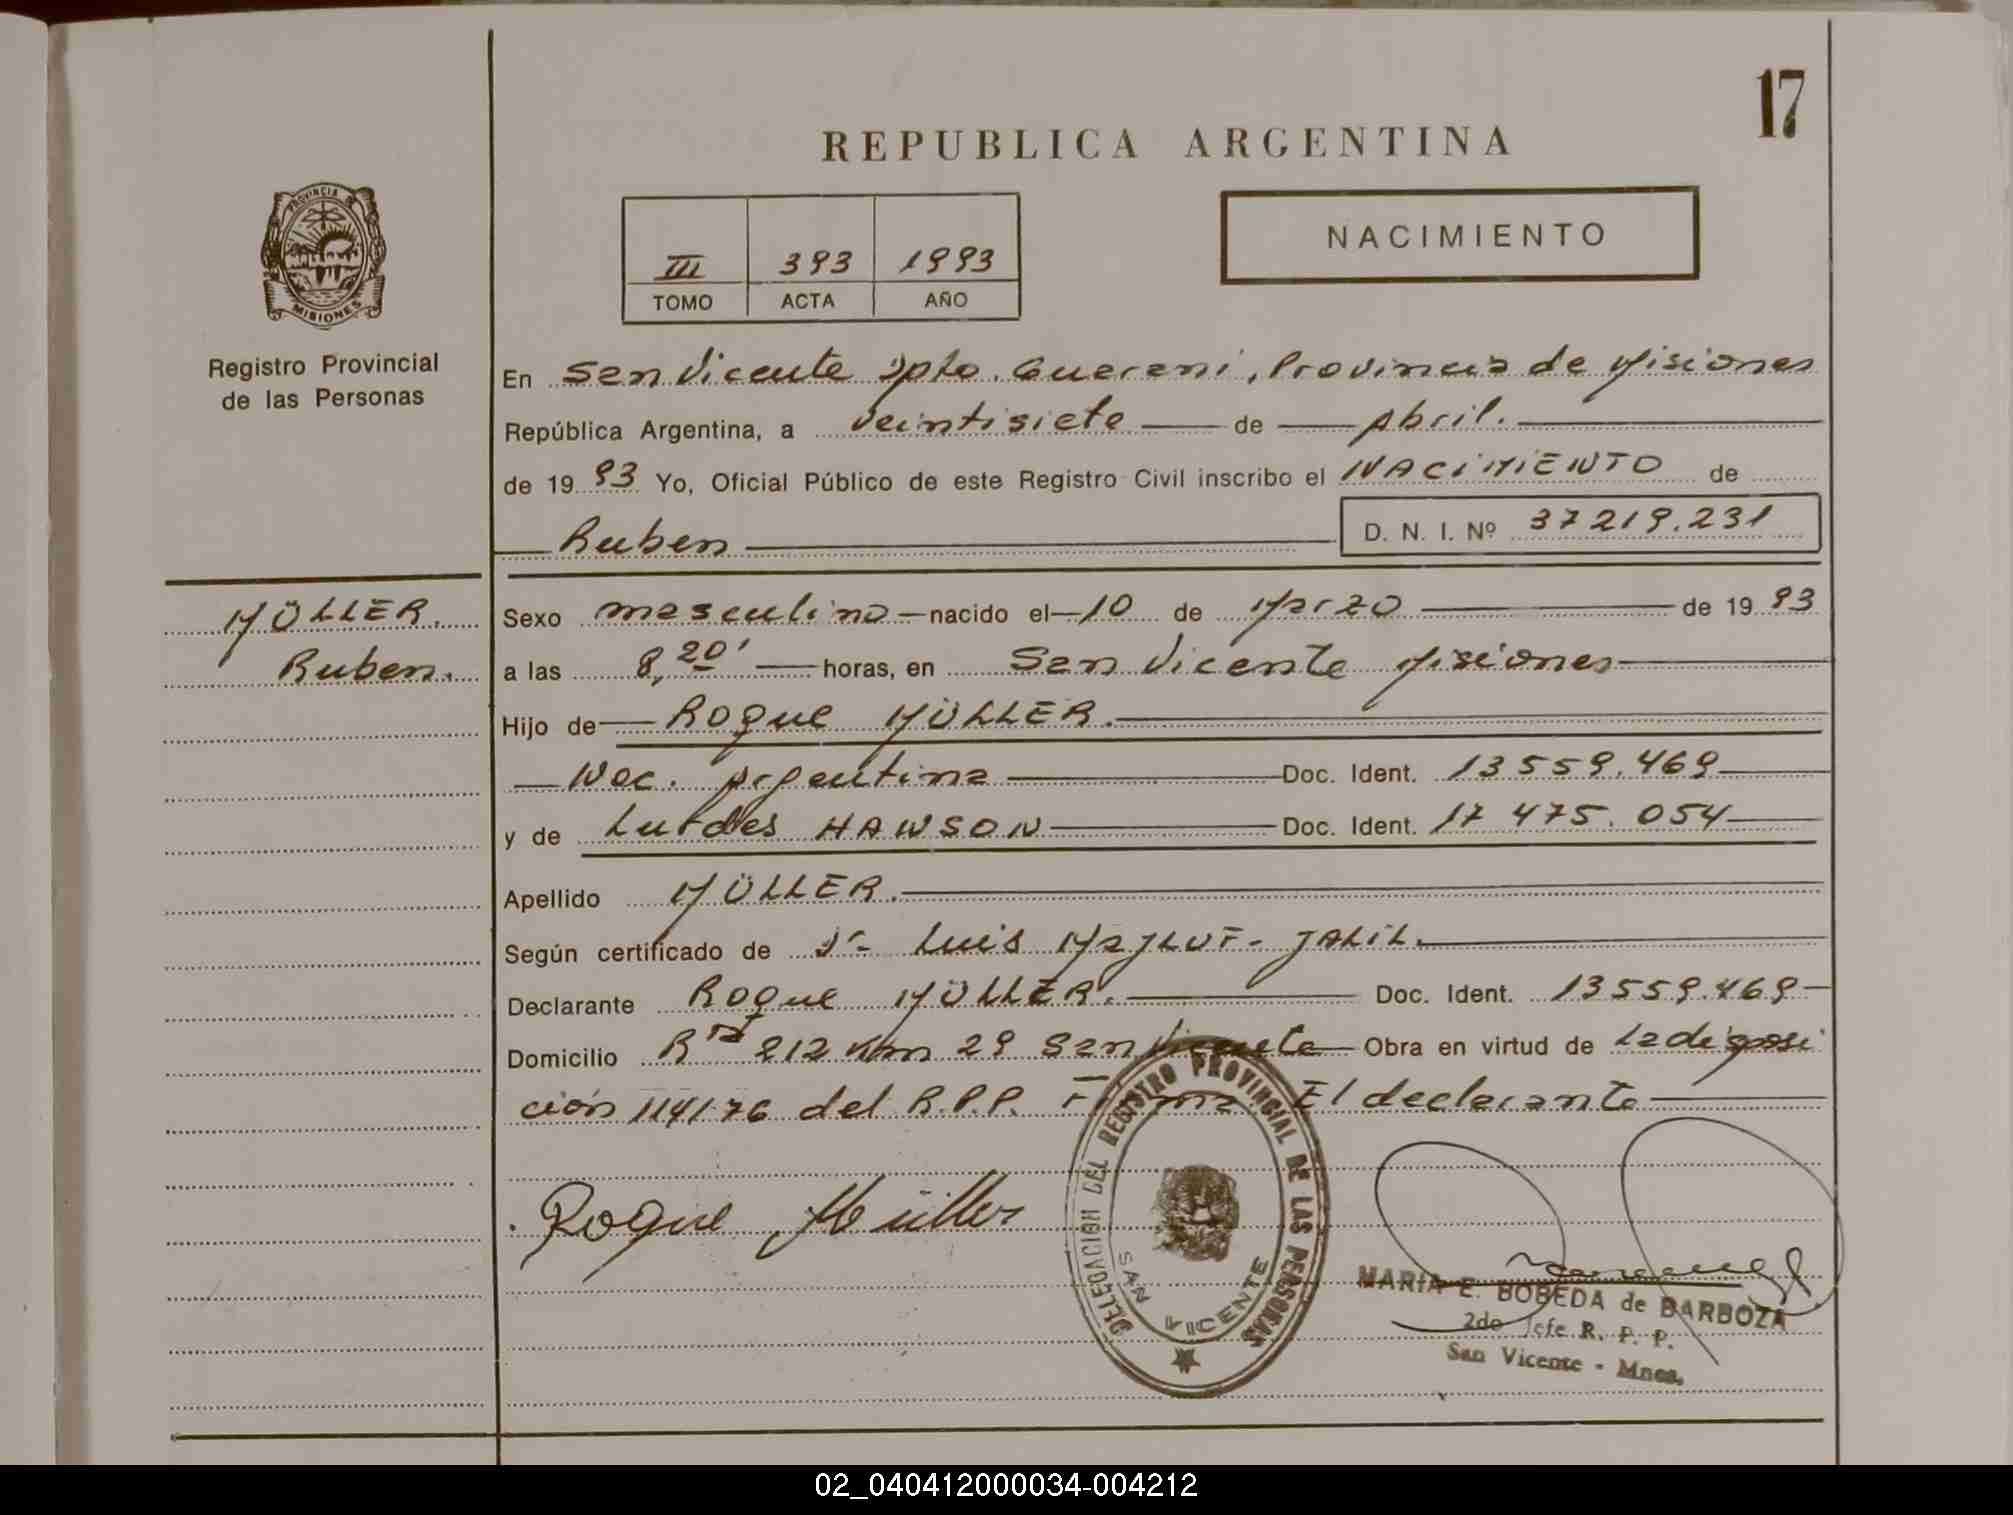 17
REPUBLICA ARGENTINA
NACIMIENTO
III 393 1993
TOMO ACTA AÑO
PROVINCIA
MISIONES
Registro Provincial
de las Personas
En San Vicente Dpto. Guarani, Provincia de Misiones
República Argentina, a veintisiete de Abril.
de 19 93 Yo, Oficial Público de este Registro Civil inscribo el NACIMIENTO de
Ruben D. N. I. Nº 37219.231
MÜLLER.
Ruben.
Sexo masculino nacido el 10 de Marzo de 19 93
a las 8,20' horas, en San Vicente Misiones
Hijo de Roque MÜLLER.
Nac. Argentina Doc. Ident. 13559.469
y de Lurdes HANSON Doc. Ident. 17 475.054
Apellido MÜLLER.
Según certificado de Dr- Luis MAJLUF- JALIL.
Declarante Roque MÜLLER. Doc. Ident. 13559.469
Domicilio Rta 212 Km 29 San Vicente Obra en virtud de la disposi
ción 114/76 del R.P.P. Firma El declarante
Roque Müller
DELEGACION DEL REGISTRO PROVINCIAL DE LAS PERSONAS
SAN VICENTE
MARÍA E. BOBEDA de BARBOZA
2do Jefe R. P. P.
San Vicente - Mnes.
02_040412000034-004212